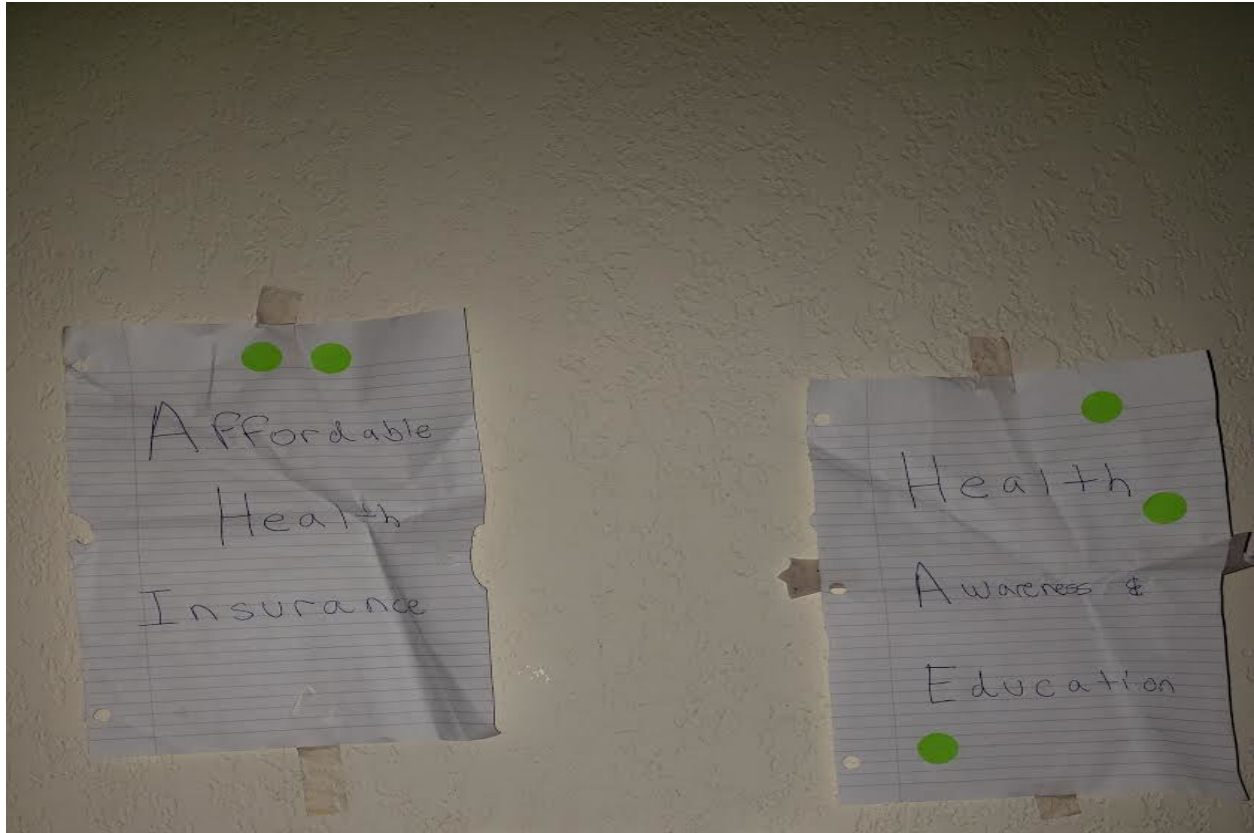 Affordable
Health
Insurance
Health
Awareness &
Education